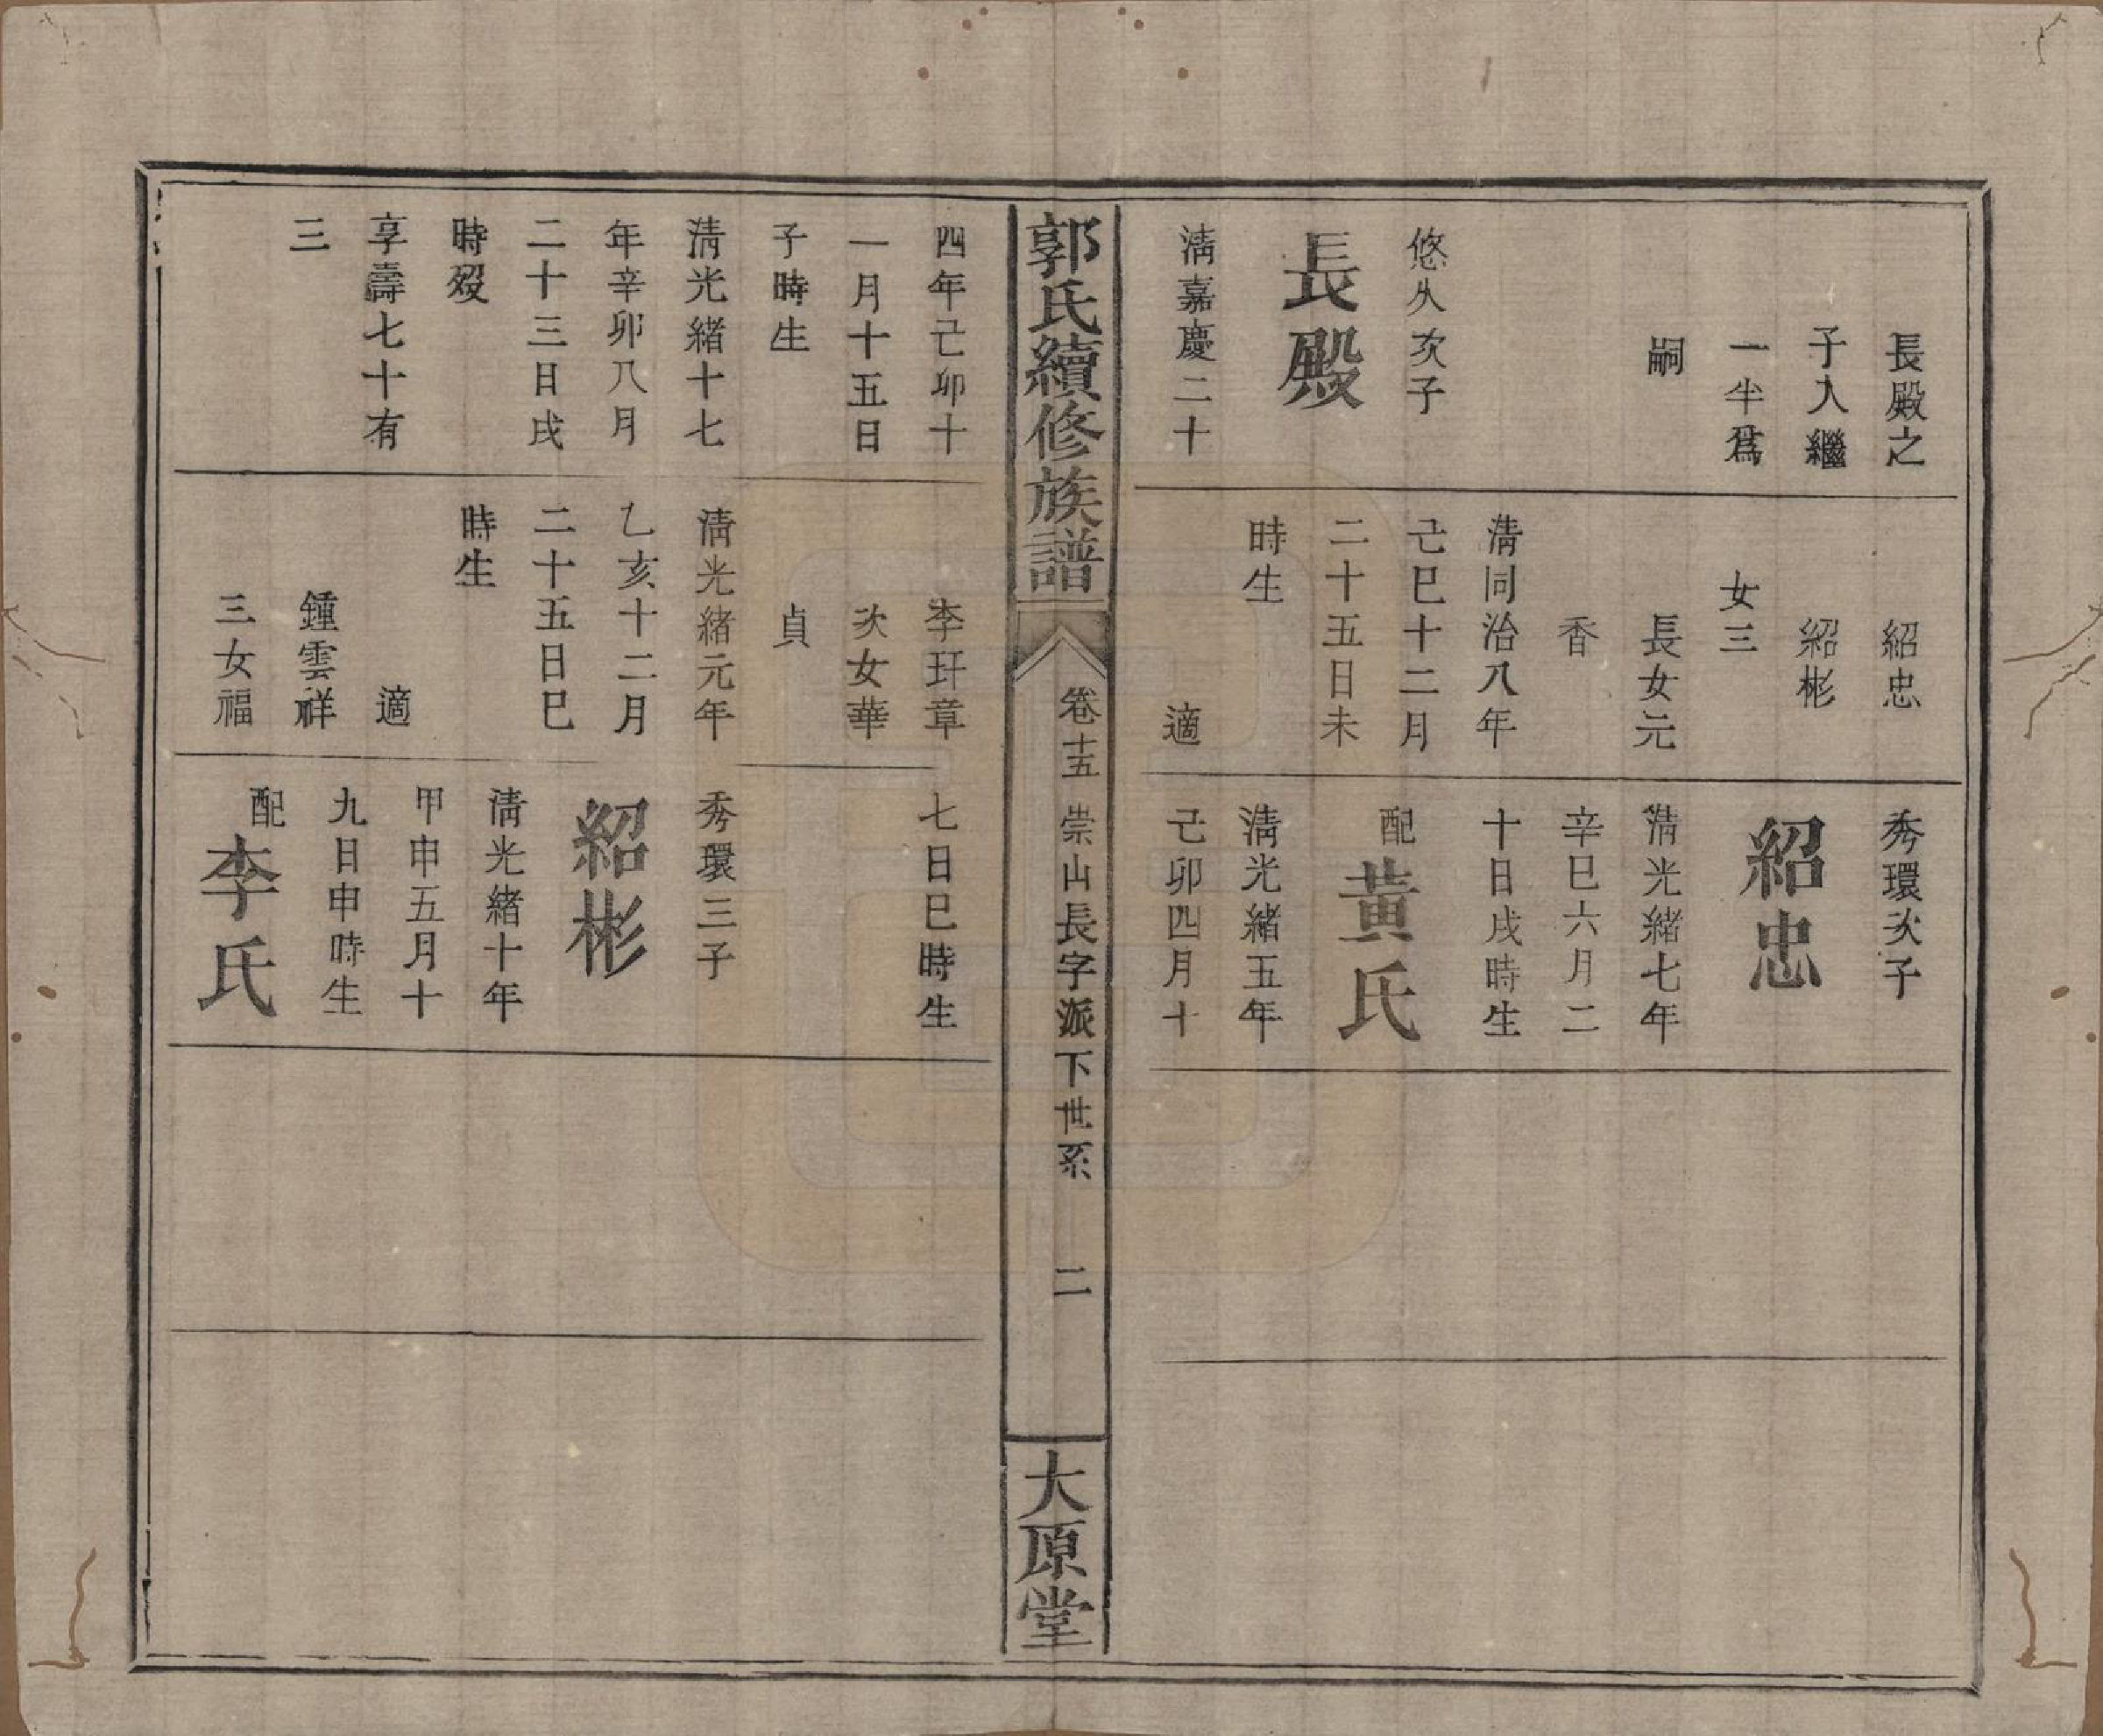 長殿之
子入繼
一半爲
嗣
悠久次子
長殿
淸嘉慶二十
紹忠
紹彬
女三
長女元
香
淸同治八年
己巳十二月
二十五日未
時生
適
秀環次子
紹忠
淸光緒七年
辛巳六月二
十日戌時生
配
黃氏
淸光緒五年
己卯四月十
郭氏續修族譜
卷十五
崇山長字派下世系
二
大原堂
四年己卯十
一月十五日
子時生
淸光緒十七
年辛卯八月
二十三日戌
時歿
享壽七十有
三
李玕章
次女華
貞
淸光緒元年
乙亥十二月
二十五日巳
時生
適
鍾雲祥
三女福
七日巳時生
秀環三子
紹彬
淸光緒十年
甲申五月十
九日申時生
配
李氏